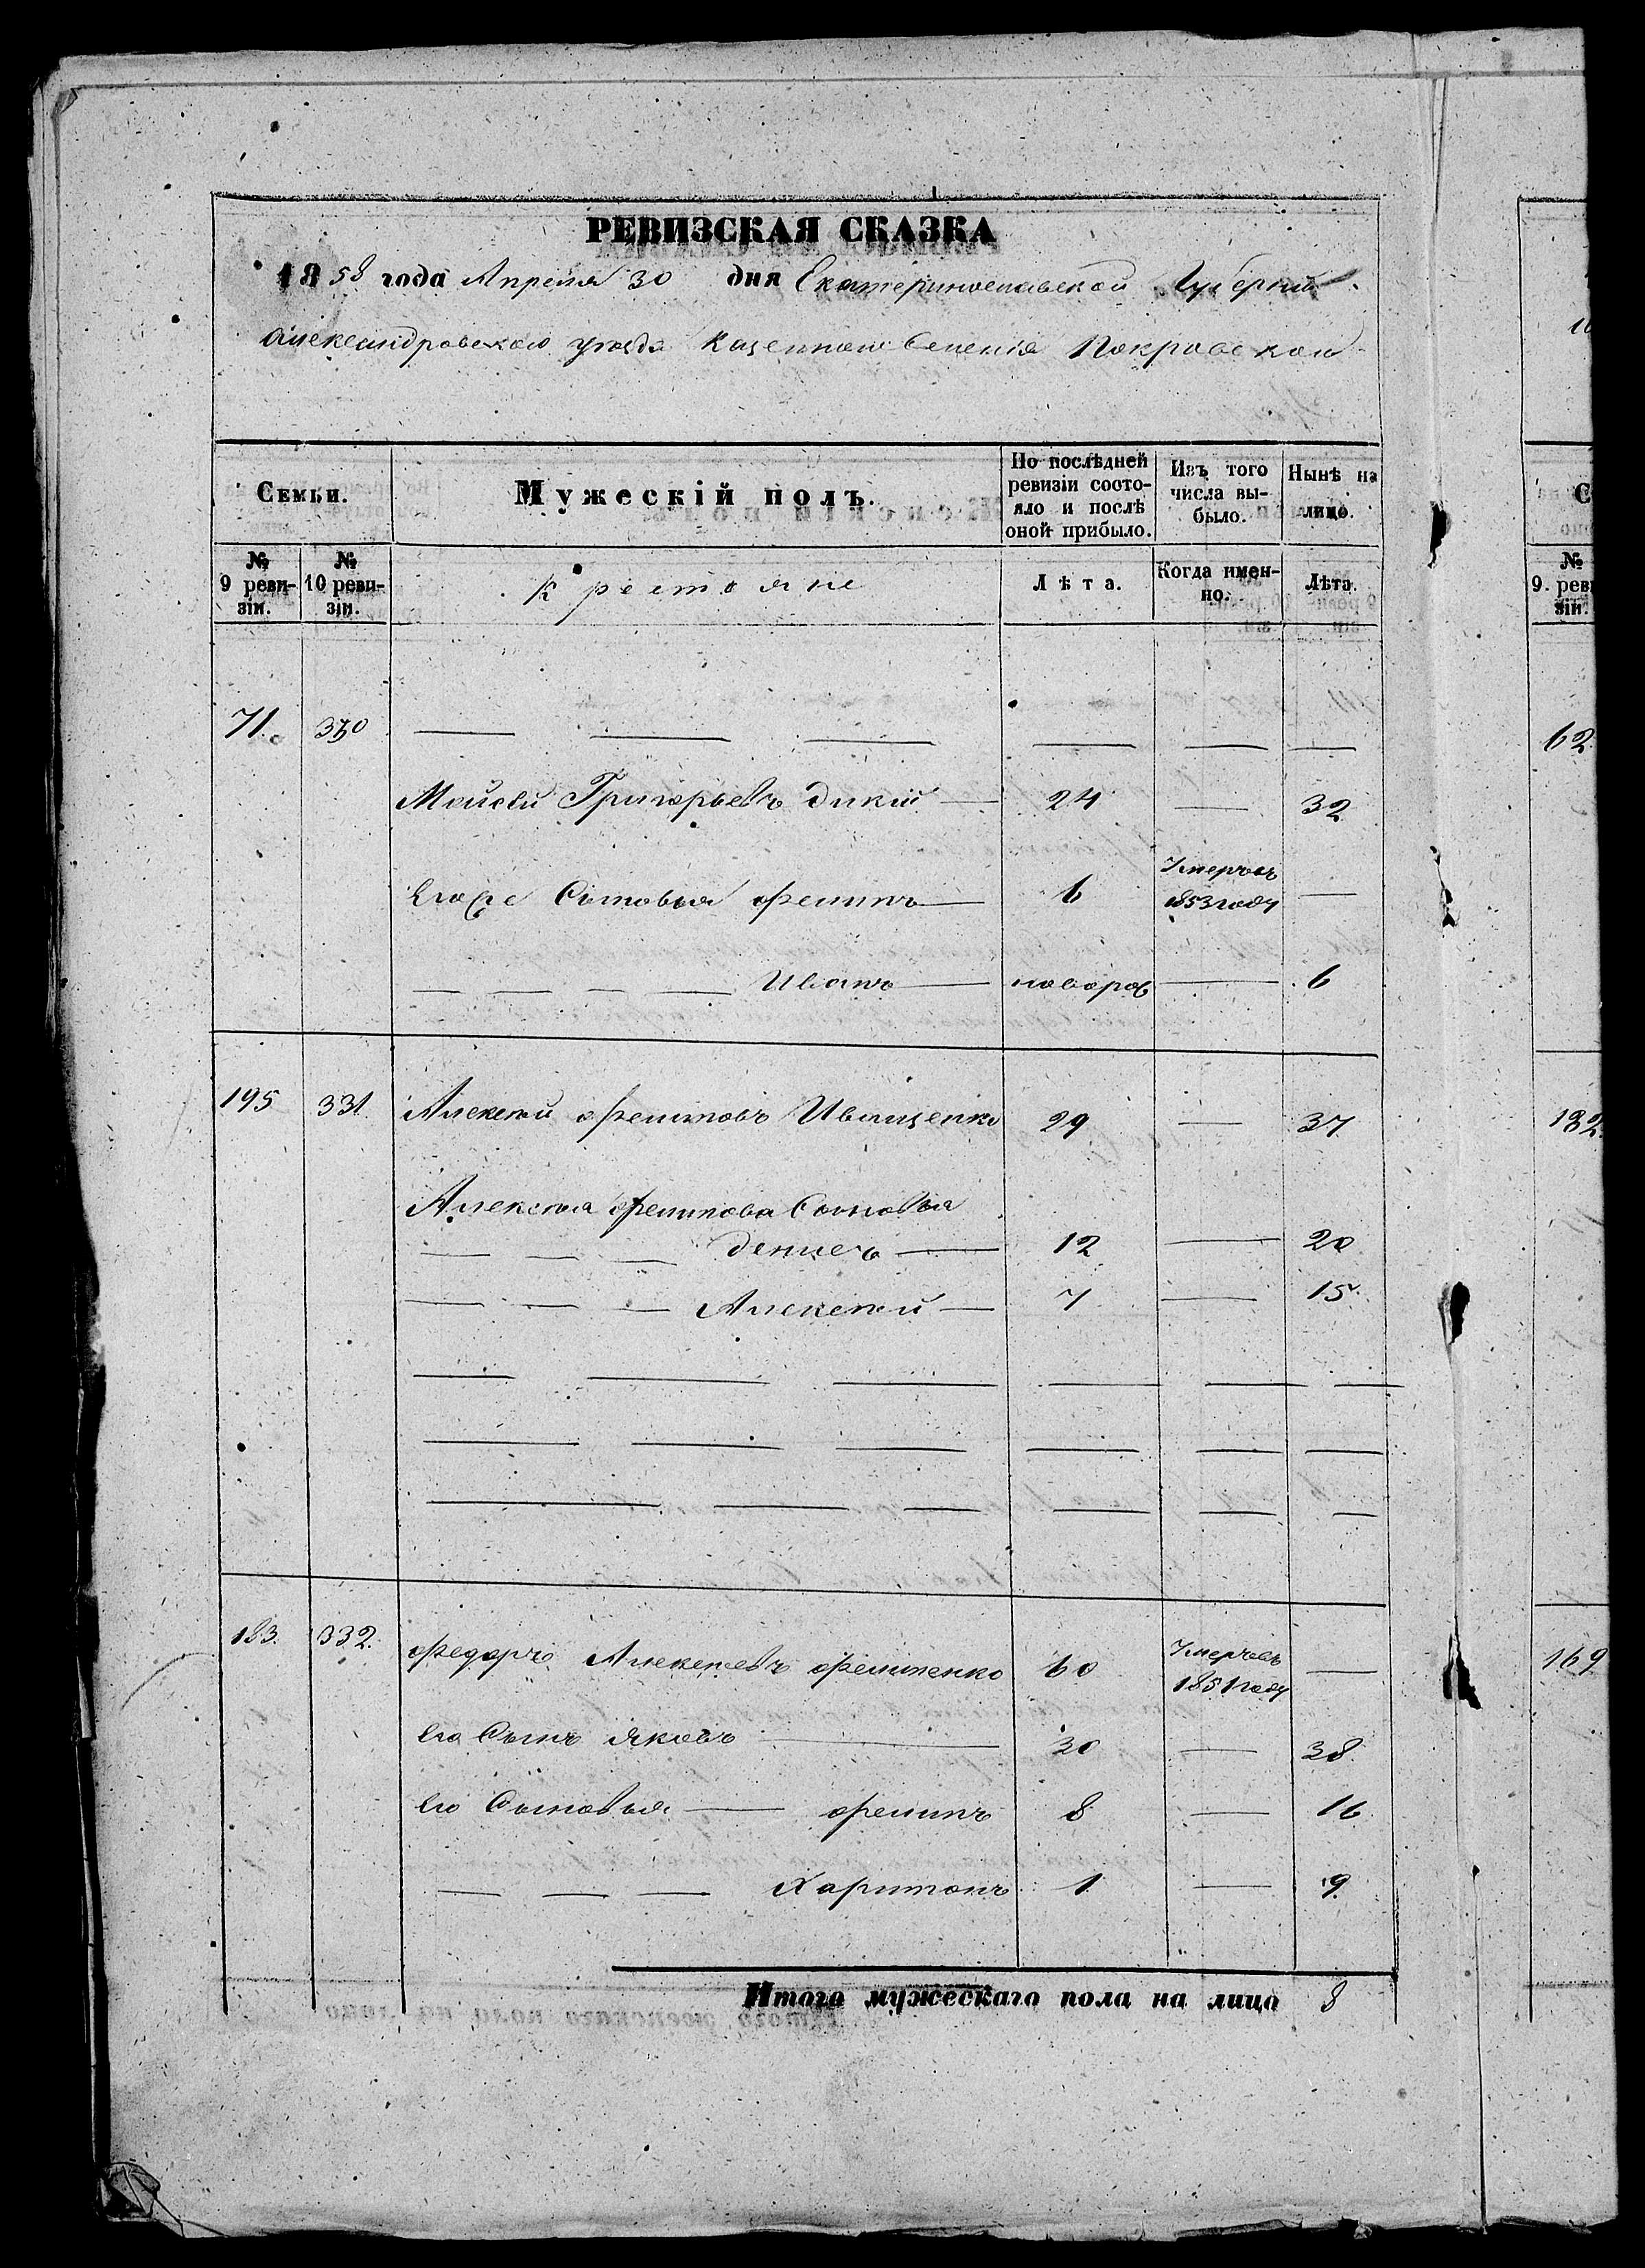 РЕВИЗСКАЯ СКАЗКА
1858 года Апреля 30 дня Екатеринославской Губерніи
Александровскаго уѣзда Казеннаго Селенія Покровскаго
Семьи.
Мужескій полъ.
По послѣдней ревизіи состояло и послѣ оной прибыло.
Изъ того числа выбыло.
Нынѣ на лицо.
№ 9 ревизіи.
№ 10 ревизіи.
Крестьяне
Лѣта.
Когда именно.
Лѣта.
71. 330
Мойсей Григорьевъ Дикій 24 32
Его же Сыновья Филипъ 6 Умеръ въ 1853 году
Иванъ новорож 6
195 331. Алексѣй Филиповъ Иващенко 29 37
Алексѣя Филипова Сыновья
Денисъ 12 20
Алексѣй 7 15
183. 332. Федоръ Алексѣевъ Филипенко 60 Умеръ въ 1851 году
Его Сынъ Яковъ 30 38
Его Сыновья Филипъ 8 16
Харитонъ 1 9
Итого мужескаго пола на лицо 8
С
№
9. реви
зіи.
62
182.
169